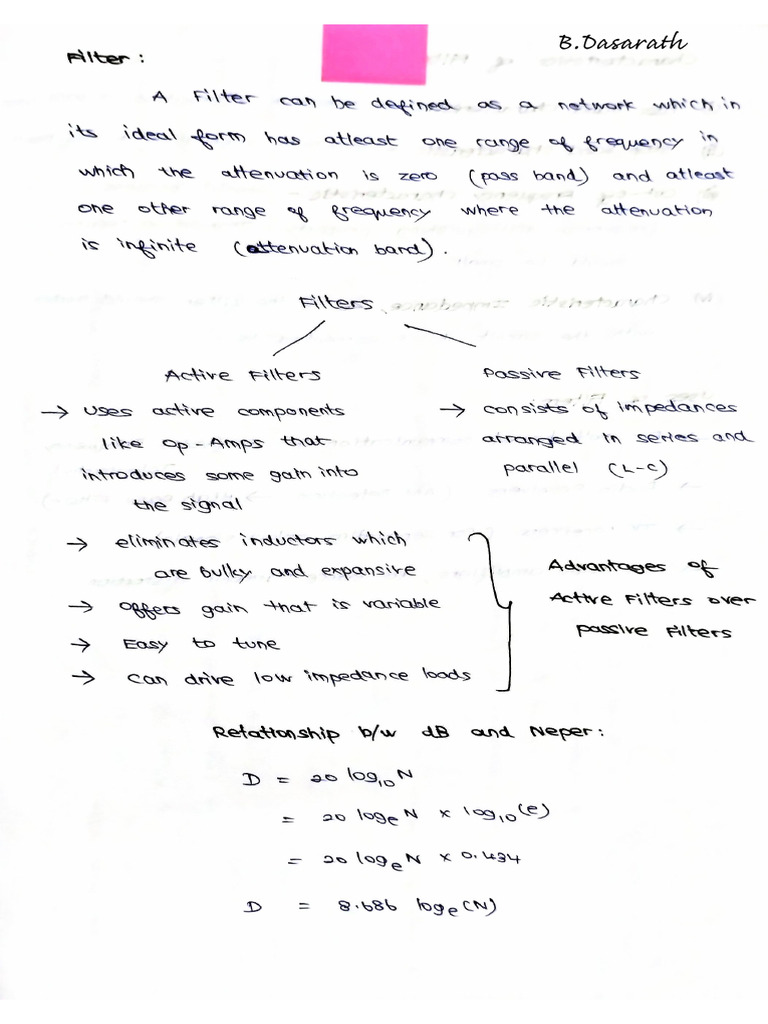 B.Dasarath
Filter :
A Filter can be defined as a network which in
its ideal form has atleast one range of frequency in
which the attenuation is zero (pass band) and atleast
one other range of frequency where the attenuation
is infinite (attenuation band).
Filters
Active Filters
→ uses active components
like Op-Amps that
introduces some gain into
the signal
→ eliminates inductors which
are bulky and expansive
→ offers gain that is variable
→ Easy to tune
→ can drive low impedance loads
Passive Filters
→ consists of impedances
arranged in series and
parallel (L-C)
Advantages of
Active Filters over
passive Filters
Relationship b/w dB and Neper:
D = 20 log₁₀N
= 20 logₑN × log₁₀(e)
= 20 logₑN × 0.434
D = 8.686 logₑ(N)